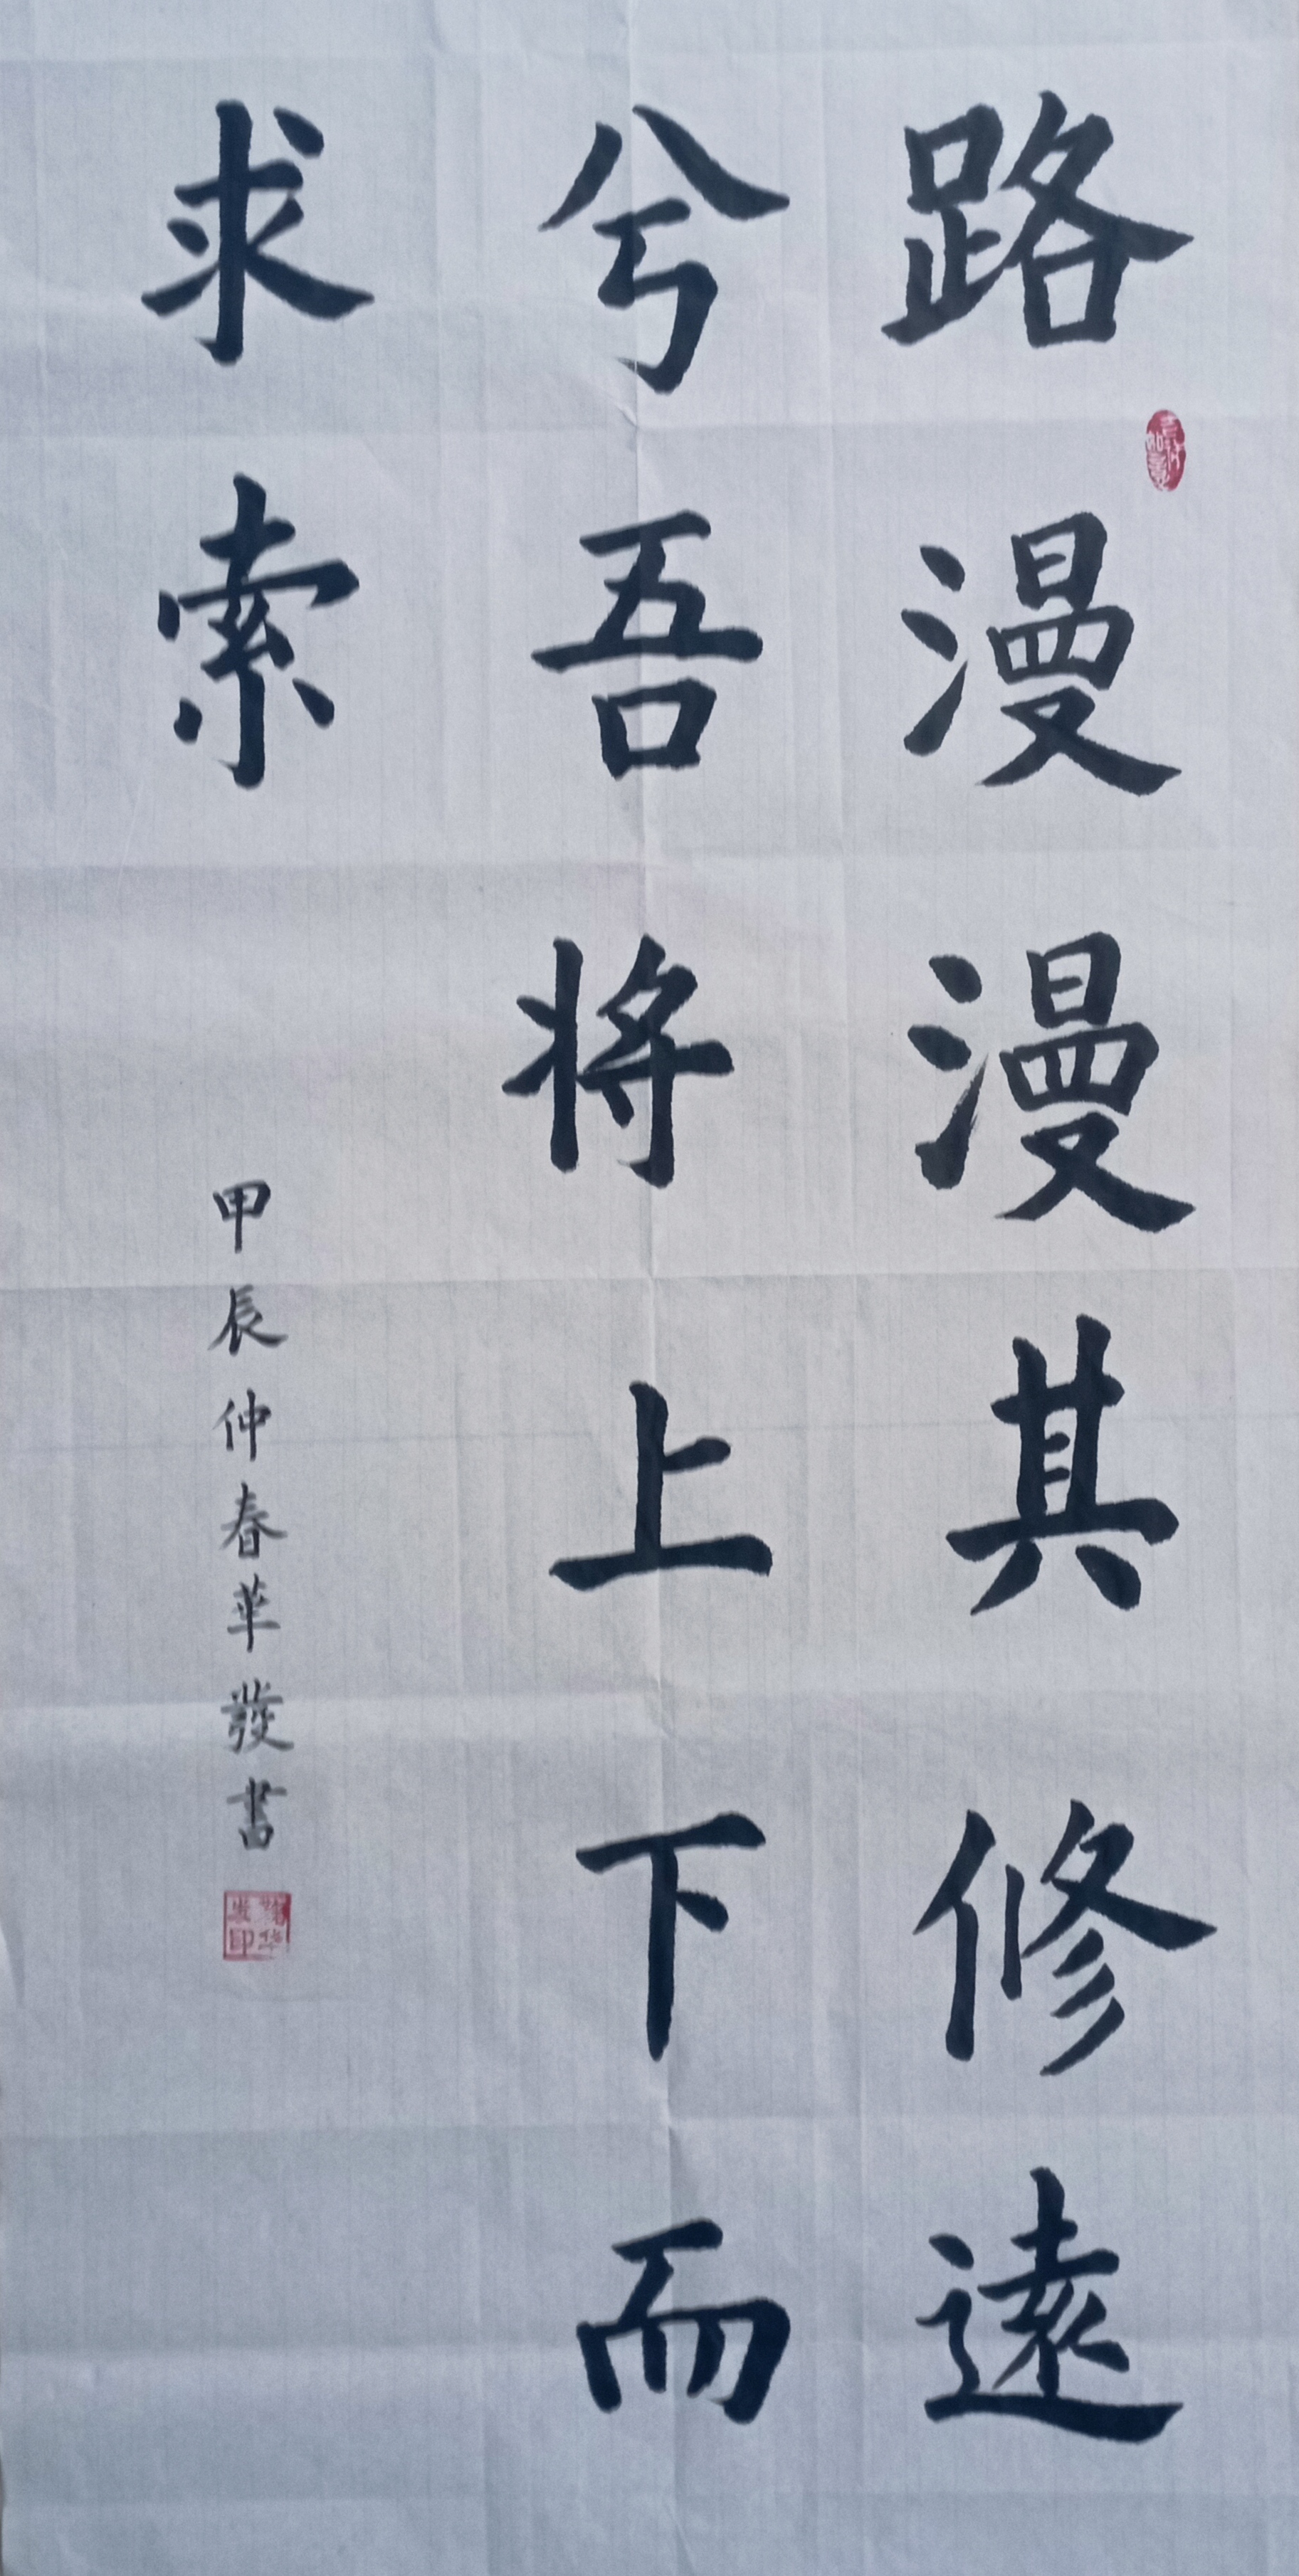 路漫漫其修遠
兮吾将上下而
求索
甲辰仲春華發書